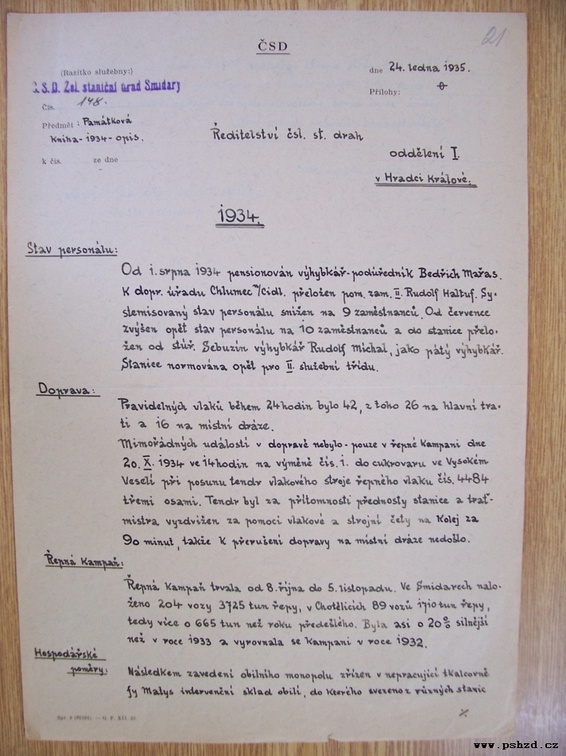 21
ČSD
(Razítko služebny:)
Č. S. D. Žel. staniční úřad Smidary
Čís. 148.
Předmět: Památková
Kniha-1934-opis.
k čís. ze dne
dne 24. ledna 1935.
Přílohy:
Ředitelství čsl. st. drah
oddělení I.
v Hradci Králové.
1934.
Stav personálu:
Od 1. srpna 1934 pensionován výhybkář-podúředník Bedřich Mařas.
K dopr. úřadu Chlumec n/Cidl. přeložen pom. zam. II. Rudolf Haltuf. Sy-
stemisovaný stav personálu snížen na 9 zaměstnanců. Od července
zvýšen opět stav personálu na 10 zaměstnanců a do stanice přelo-
žen od stúř. Sebuzín výhybkář Rudolf Michal, jako pátý výhybkář.
Stanice normována opět pro II. služební třídu.
Doprava:
Pravidelných vlaků během 24 hodin bylo 42, z toho 26 na hlavní tra-
ti a 16 na místní dráze.
Mimořádných událostí v dopravě nebylo-pouze v řepné kampani dne
20. X. 1934 ve 14 hodin na výměně čís. 1. do cukrovaru ve Vysokém
Veselí při posunu tendr vlakového stroje řepného vlaku čís. 4484
třemi osami. Tendr byl za přítomnosti přednosty stanice a trať-
mistra vyzdvižen za pomoci vlakové a strojní čety na kolej za
90 minut, takže k přerušení dopravy na místní dráze nedošlo.
Řepná kampaň:
Řepná kampaň trvala od 8. října do 5. listopadu. Ve Smidarech nalo-
ženo 204 vozy 3725 tun řepy, v Chotělicích 89 vozů 1710 tun řepy,
tedy více o 665 tun než roku předešlého. Byla asi o 20% silnější
než v roce 1933 a vyrovnala se kampani v roce 1932.
Hospodářské
poměry:
Následkem zavedení obilního monopolu zřízen v nepracující tkalcovně
fy Malys intervenční sklad obilí, do kterého svezeno z různých stanic
www.pshzd.cz